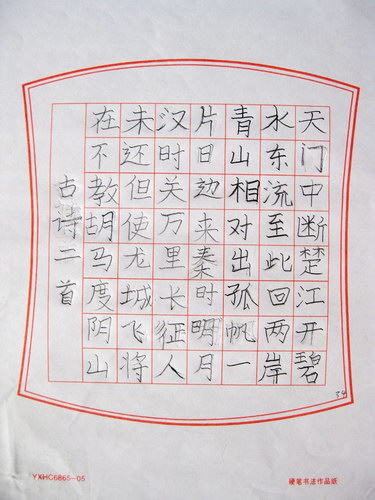 天门中断楚江开碧
水东流至此回两岸
青山相对出孤帆一
片日边来秦时明月
汉时关万里长征人
未还但使龙城飞将
在不教胡马度阴山
古诗二首
YXHC6865-05
硬笔书法作品纸